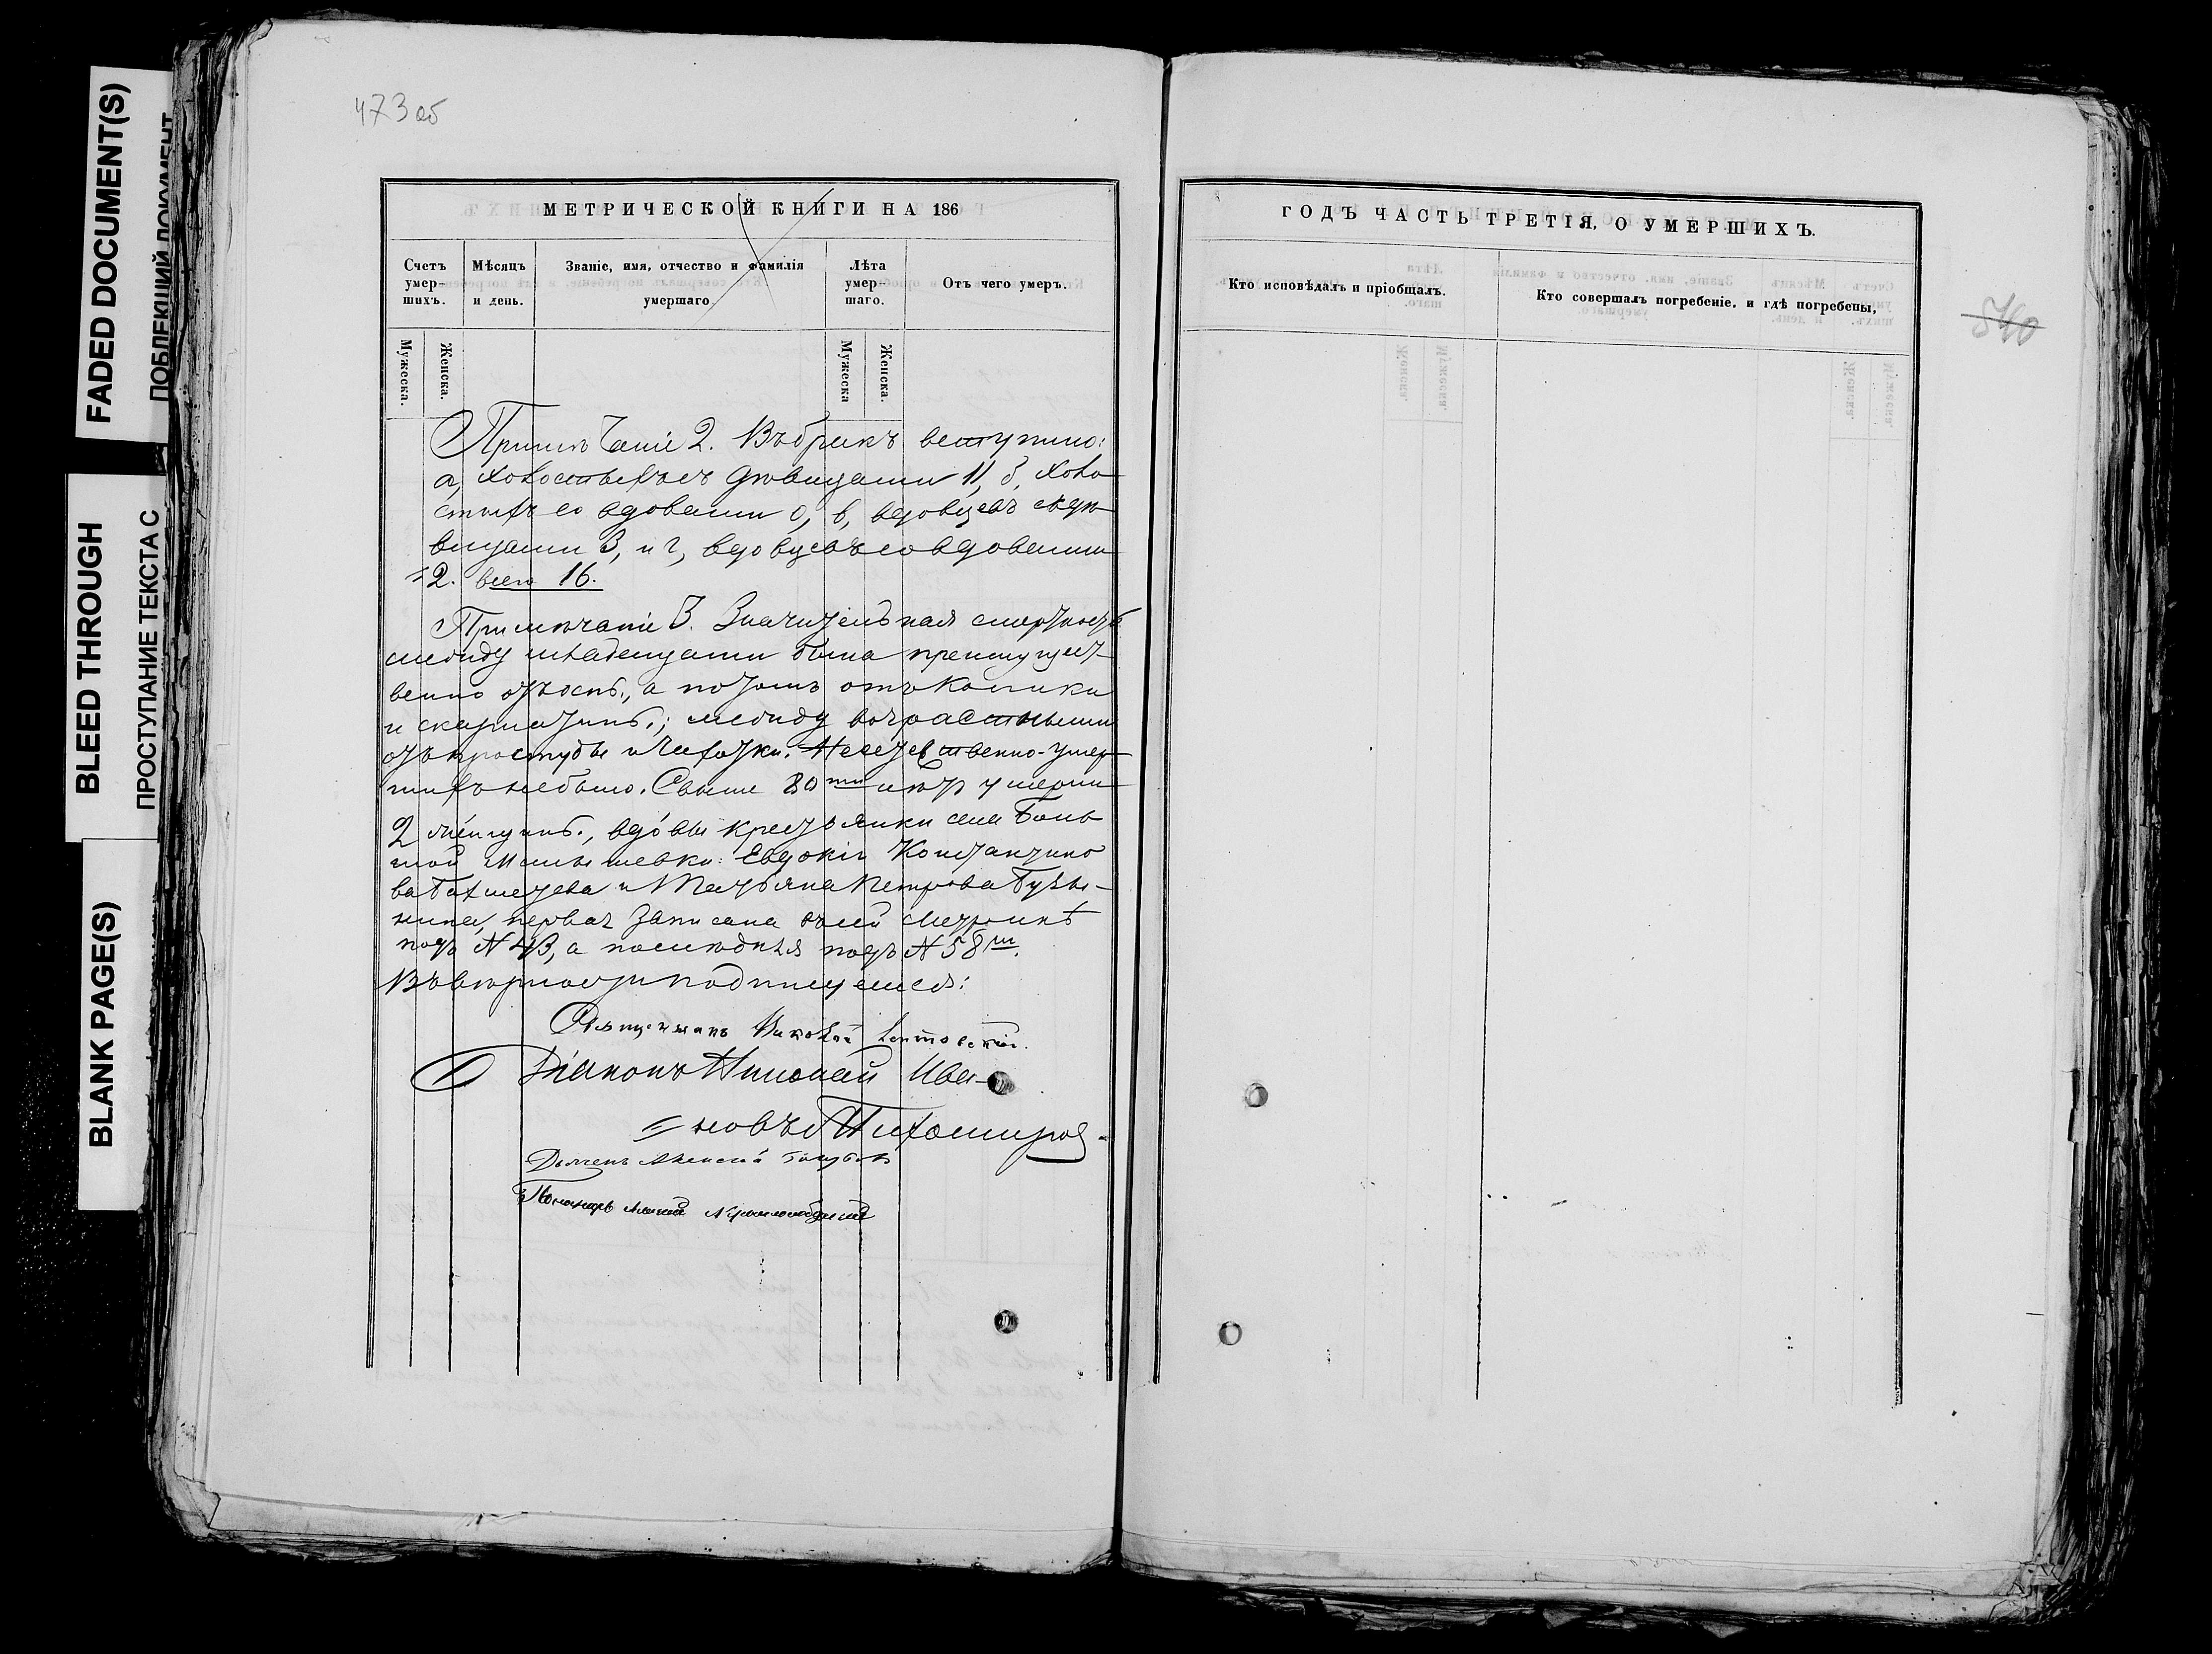 FADED DOCUMENT(S)
BLEED THROUGH
ПРОСТУПАНИЕ ТЕКСТА С
BLANK PAGE(S)
473 об
МЕТРИЧЕСКОЙ КНИГИ НА 186
Счетъ умер- шихъ.
Мѣсяцъ и день.
Званіе, имя, отчество и фамилія умершаго
Лѣта умер- шаго.
Отъ чего умеръ.
Мужеска.
Женска.
Мужеска
Женска.
Примѣчаніе 2. Въ бракъ вступило:
а, холостыхъ съ дѣвицами 11, б, холо-
стыхъ со вдовами 0, в, вдовцевъ съ дѣ-
вицами 3, и г, вдовцевъ со вдовами
2. всего 16.
Примѣчаніе 3. Значительная смертность
между младенцами была преимущест-
венно отъ оспы, а потомъ отъ колики
и скарлатины; между возрастными
отъ простуды и чахотки. Неестественно-умер-
шихъ не было. Свыше 80ти лѣтъ умерли
2 женщины, вдовы крестьянки села Боль
шой Малышевки: Евдокія Константино
ва и Татьяна Петрова
первая записана въ сей метрикѣ
подъ N 43, а послѣдняя подъ N 58м.
Въ вѣрности подпишемся:
Священникъ
Діаконъ Николай Ива-
новъ Тихомировъ.
Дьячекъ Алексей
Пономарь
ГОДЪ ЧАСТЬ ТРЕТІЯ, О УМЕРШИХЪ.
Кто исповѣдалъ и пріобщалъ.
Кто совершалъ погребеніе, и гдѣ погребены,
540